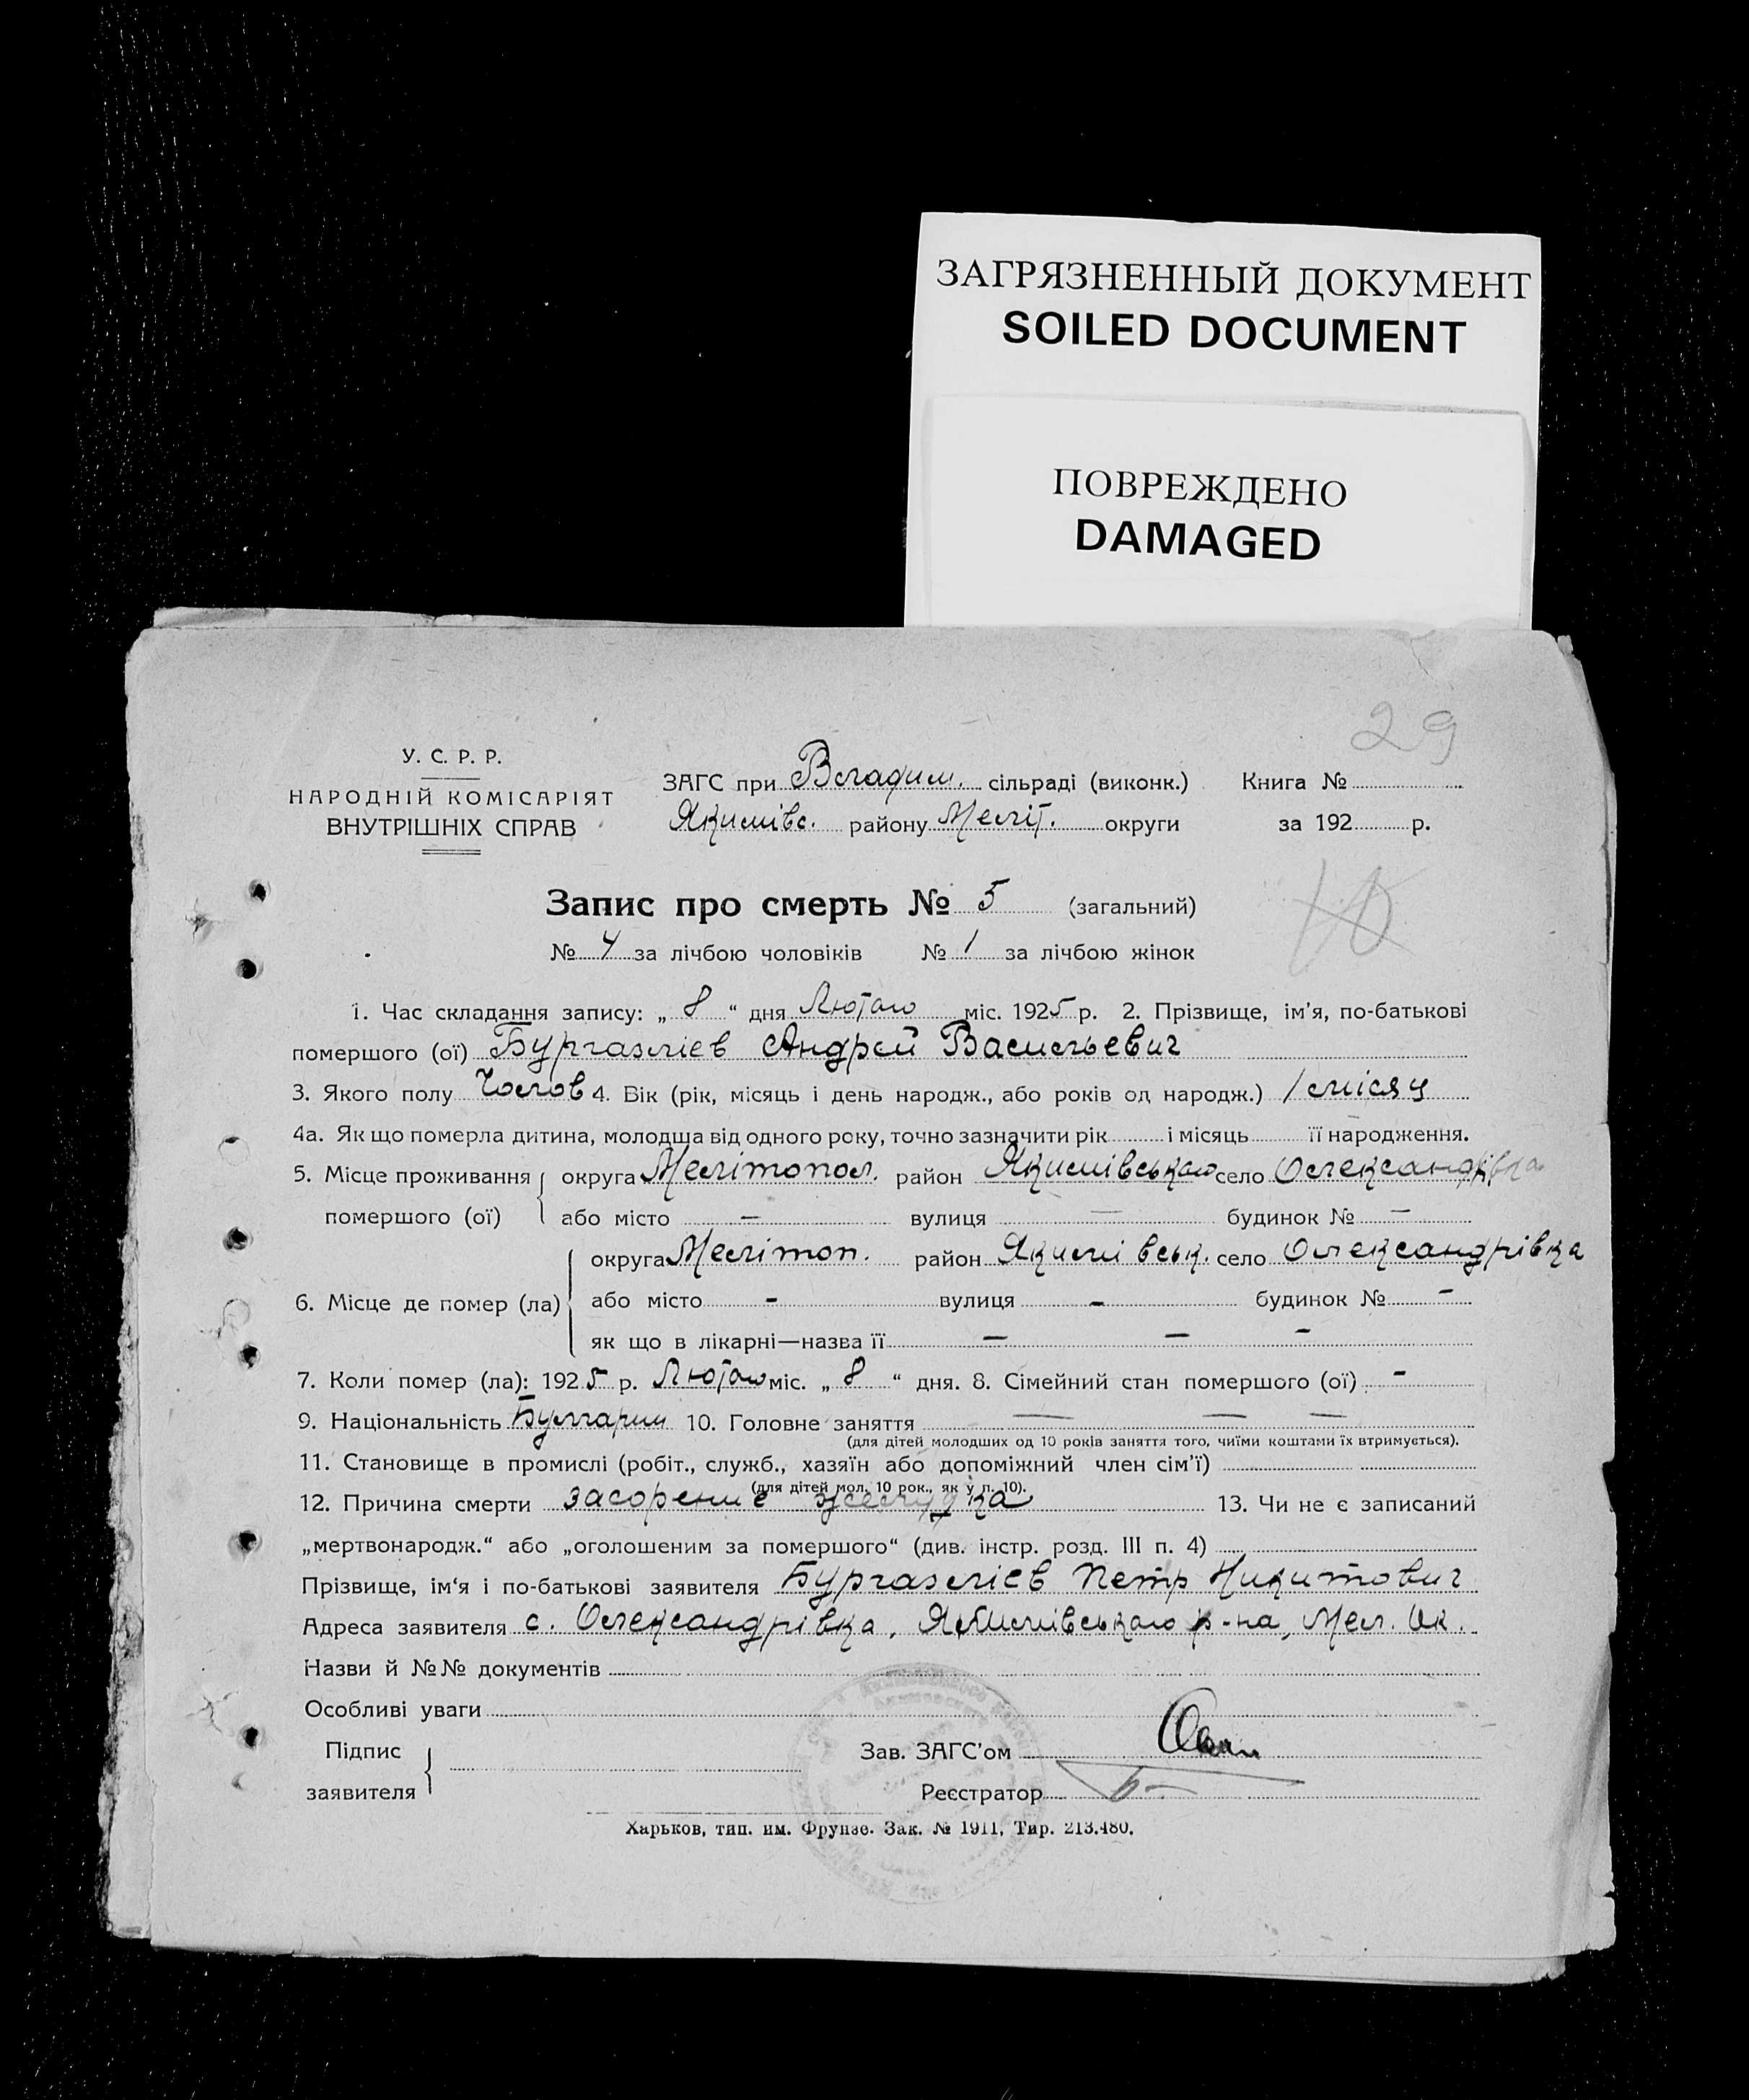 ЗАГРЯЗНЕННЫЙ ДОКУМЕНТ
SOILED DOCUMENT
ПОВРЕЖДЕНО
DAMAGED
29
У. С. Р. Р.
НАРОДНІЙ КОМІСАРІЯТ
ВНУТРІШНІХ СПРАВ
ЗАГС при Владим. сільраді (виконк.) Книга №
Якимівс. району Меліт. округи за 192 р.
Запис про смерть № 5 (загальний)
№ 4 за лічбою чоловіків № 1 за лічбою жінок
1. Час складання запису: „ 8 “ дня Лютого міс. 1925 р. 2. Прізвище, ім'я, по-батькові
помершого (ої) Бургазлієв Андрей Васильевич
3. Якого полу Чолов 4. Вік (рік, місяць і день народж., або років од народж.) 1 місяц
4а. Як що померла дитина, молодша від одного року, точно зазначити рік і місяць її народження.
5. Місце проживання округа Мелітопол. район Якимівського село Олександрівка
помершого (ої) або місто — вулиця — будинок № —
округа Мелітоп. район Якимівськ. село Олександрівка
6. Місце де помер (ла) або місто - вулиця - будинок № -
як що в лікарні—назва її — — -
7. Коли помер (ла): 1925 р. Лютого міс. „ 8 “ дня. 8. Сімейний стан помершого (ої) -
9. Національність Булгарин 10. Головне заняття — — —
(для дітей молодших од 10 років заняття того, чиїми коштами їх втримується).
11. Становище в промислі (робіт., служб., хазяїн або допоміжний член сім'ї)
(для дітей мол. 10 рок., як у п. 10).
12. Причина смерти засорение желудка 13. Чи не є записаний
„мертвонародж.“ або „оголошеним за помершого“ (див. інстр. розд. III п. 4)
Прізвище, ім'я і по-батькові заявителя Бургазлієв Петр Никитович
Адреса заявителя с. Олександрівка, Якимівського р-на, Мел. Ок.
Назви й №№ документів
Особливі уваги
Підпис
заявителя
Зав. ЗАГС'ом
Реєстратор
Харьков, тип. им. Фрунзе. Зак. № 1911, Тир. 213.480.